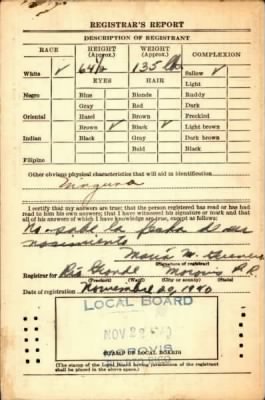 REGISTRAR'S REPORT
DESCRIPTION OF REGISTRANT
RACE HEIGHT (Approx.) WEIGHT (Approx.) COMPLEXION
White ✓ 64½ 135 lbs Sallow ✓
EYES HAIR Light
Negro Blue Blonde Ruddy
Gray Red Dark
Oriental Hazel Brown Freckled
Brown ✓ Black ✓ Light brown
Indian Black Gray Dark brown
Bald Black
Filipino
Other obvious physical characteristics that will aid in identification
Ninguna
I certify that my answers are true; that the person registered has read or has had
read to him his own answers; that I have witnessed his signature or mark and that
all of his answers of which I have knowledge are true, except as follows:
No sabe la fecha de su
nacimiento
Maria M.
(Signature of registrar)
Registrar for Rio Grande Morovis P.R.
(Precinct) (Ward) (City or county) (State)
Date of registration November 20, 1940
LOCAL BOARD
NOV 29
MOROVIS
STAMP OF LOCAL BOARD
(The stamp of the Local Board having jurisdiction of the registrant
shall be placed in the above space.)